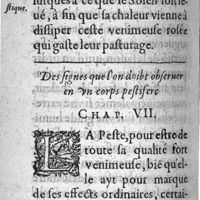 stique.
iusques à ce que le Soleil soit le-
ué, à fin que sa chaleur vienne à
dissiper ceste venimeuse rosee
qui gaste leur pasturage.
Des signes que l'on doibt obseruer
en vn corps pestiferé
CHAP. VII.
LA Peste, pour estre de
toute sa qualité fort
venimeuse, biẽ qu'el-
le ayt pour marque
de ses effects ordinaires, certai-